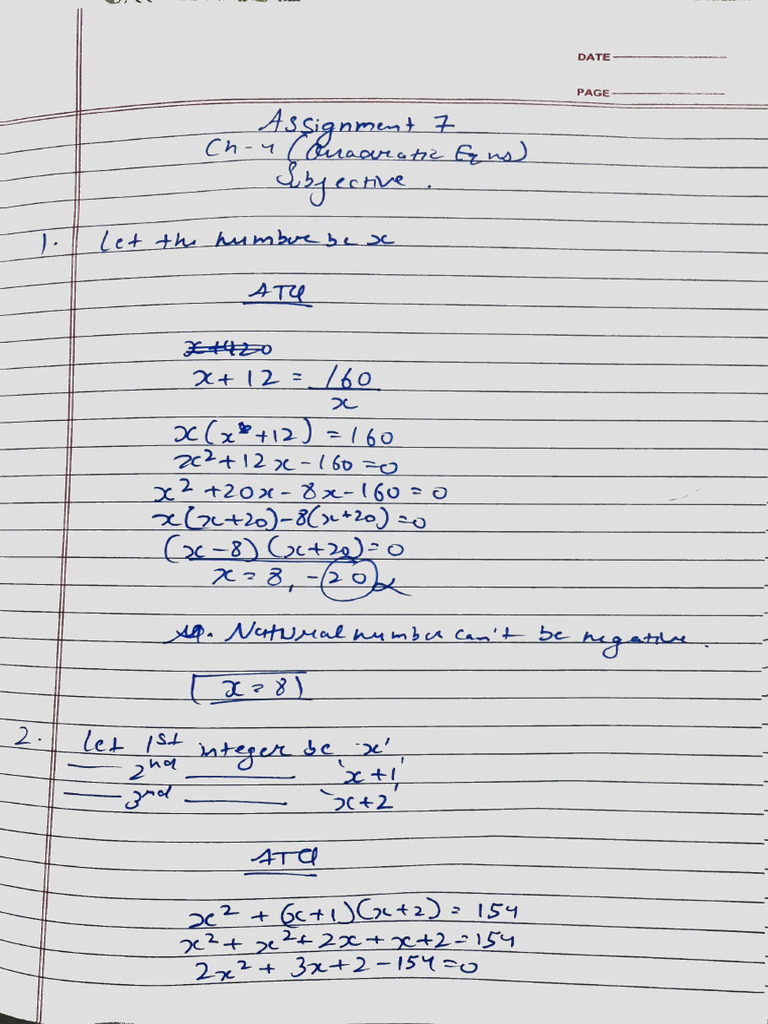 DATE
PAGE
Assignment 7
Ch-4 (Quadratic Eqns)
Subjective.
1. Let the number be x
ATQ
x + 12 = 160/x
x(x + 12) = 160
x² + 12x - 160 = 0
x² + 20x - 8x - 160 = 0
x(x+20) - 8(x+20) = 0
(x-8)(x+20) = 0
x = 8, -20
Natural number can't be negative.
x = 8
2. Let 1st integer be 'x'
— 2nd — 'x+1'
— 3rd — 'x+2'
ATQ
x² + (x+1)(x+2) = 154
x² + x² + 2x + x + 2 = 154
2x² + 3x + 2 - 154 = 0